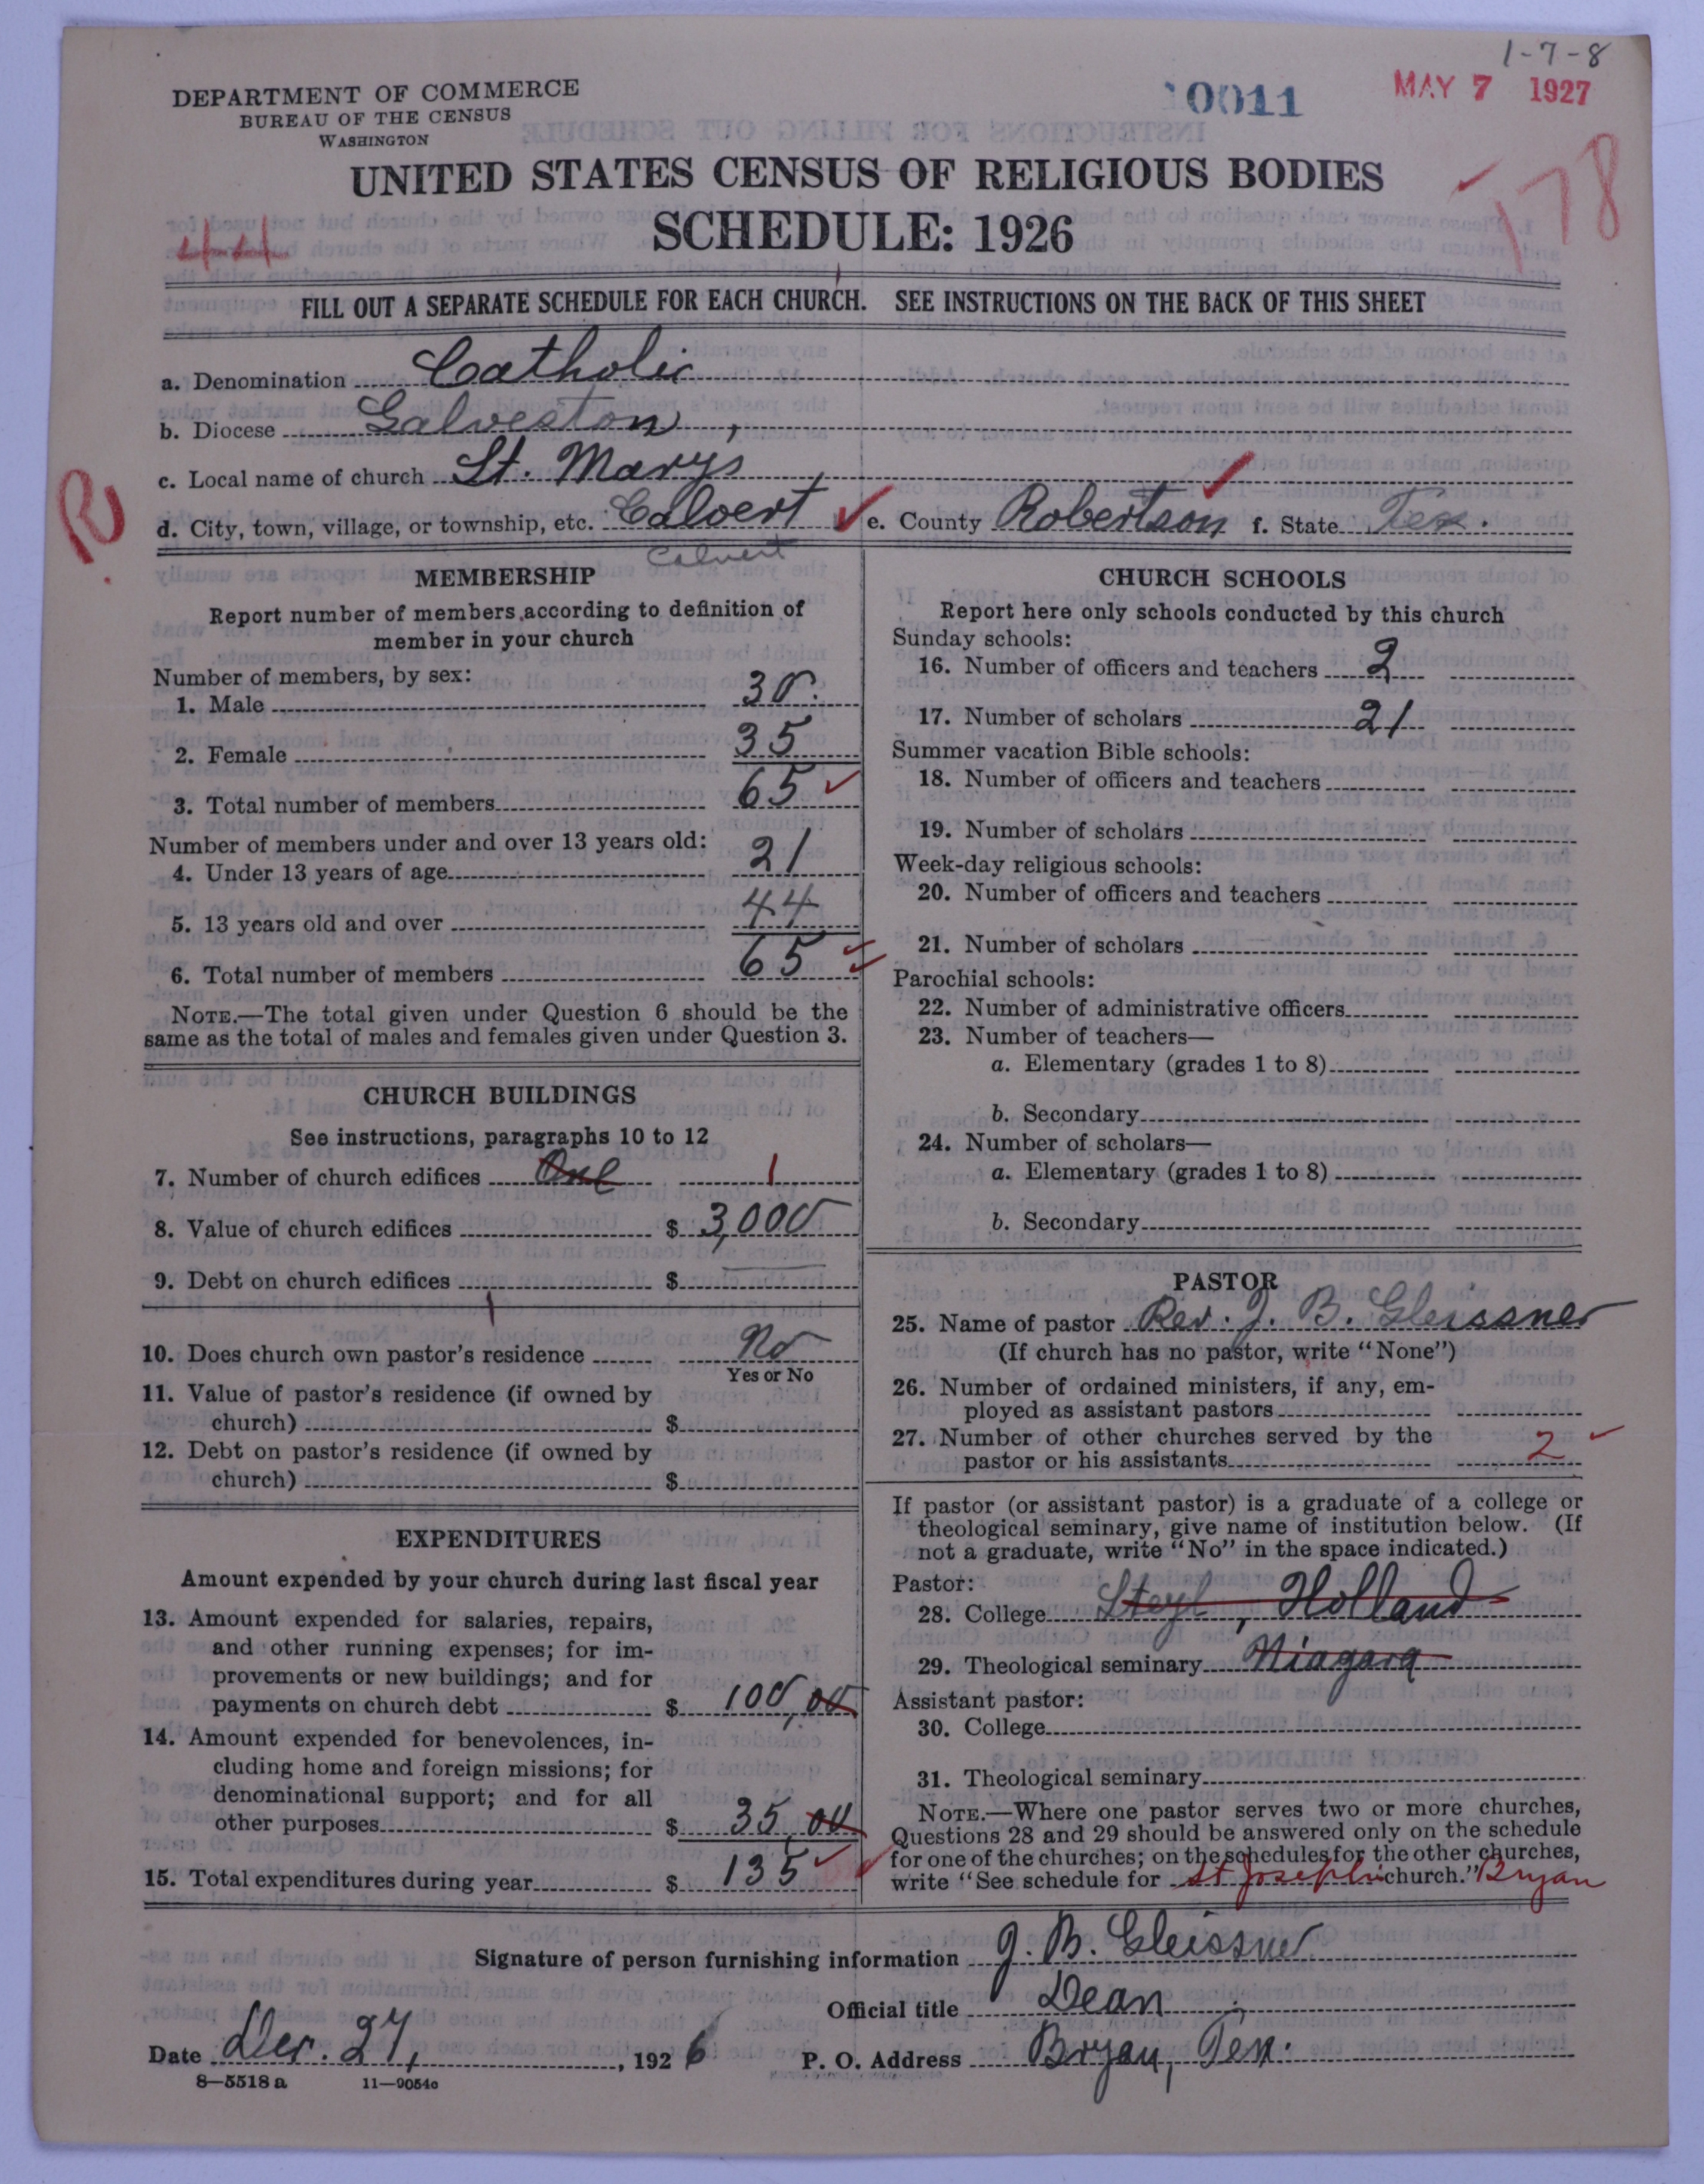 1-7-8
DEPARTMENT OF COMMERCE
BUREAU OF THE CENSUS
WASHINGTON
10011
MAY 7 1927
UNITED STATES CENSUS OF RELIGIOUS BODIES
SCHEDULE: 1926
44
178
FILL OUT A SEPARATE SCHEDULE FOR EACH CHURCH. SEE INSTRUCTIONS ON THE BACK OF THIS SHEET
a. Denomination Catholic
b. Diocese Galveston,
c. Local name of church St. Marys
R
d. City, town, village, or township, etc. Calvert e. County Robertson f. State Tex.
Calvert
MEMBERSHIP
Report number of members according to definition of
member in your church
Number of members, by sex:
1. Male 30.
2. Female 35
3. Total number of members 65
Number of members under and over 13 years old:
4. Under 13 years of age 21
5. 13 years old and over 44
6. Total number of members 65
NOTE.—The total given under Question 6 should be the
same as the total of males and females given under Question 3.
CHURCH BUILDINGS
See instructions, paragraphs 10 to 12
7. Number of church edifices One 1
8. Value of church edifices $ 3,000
9. Debt on church edifices $
10. Does church own pastor's residence No
Yes or No
11. Value of pastor's residence (if owned by
church) $
12. Debt on pastor's residence (if owned by
church) $
EXPENDITURES
Amount expended by your church during last fiscal year
13. Amount expended for salaries, repairs,
and other running expenses; for im-
provements or new buildings; and for
payments on church debt $ 100,00
14. Amount expended for benevolences, in-
cluding home and foreign missions; for
denominational support; and for all
other purposes $ 35,00
15. Total expenditures during year $ 135
CHURCH SCHOOLS
Report here only schools conducted by this church
Sunday schools:
16. Number of officers and teachers 2
17. Number of scholars 21
Summer vacation Bible schools:
18. Number of officers and teachers
19. Number of scholars
Week-day religious schools:
20. Number of officers and teachers
21. Number of scholars
Parochial schools:
22. Number of administrative officers
23. Number of teachers—
a. Elementary (grades 1 to 8)
b. Secondary
24. Number of scholars—
a. Elementary (grades 1 to 8)
b. Secondary
PASTOR
25. Name of pastor Rev. J. B. Gleissner
(If church has no pastor, write "None")
26. Number of ordained ministers, if any, em-
ployed as assistant pastors
27. Number of other churches served by the
pastor or his assistants 2
If pastor (or assistant pastor) is a graduate of a college or
theological seminary, give name of institution below. (If
not a graduate, write "No" in the space indicated.)
Pastor:
28. College Steyl, Holland
29. Theological seminary Niagara
Assistant pastor:
30. College
31. Theological seminary
NOTE.—Where one pastor serves two or more churches,
Questions 28 and 29 should be answered only on the schedule
for one of the churches; on the schedules for the other churches,
write "See schedule for St Joseph's church." Bryan
Signature of person furnishing information J. B. Gleissner
Official title Dean
Date Dec. 27, 1926 P. O. Address Bryan, Tex.
8—5518 a 11—9054c